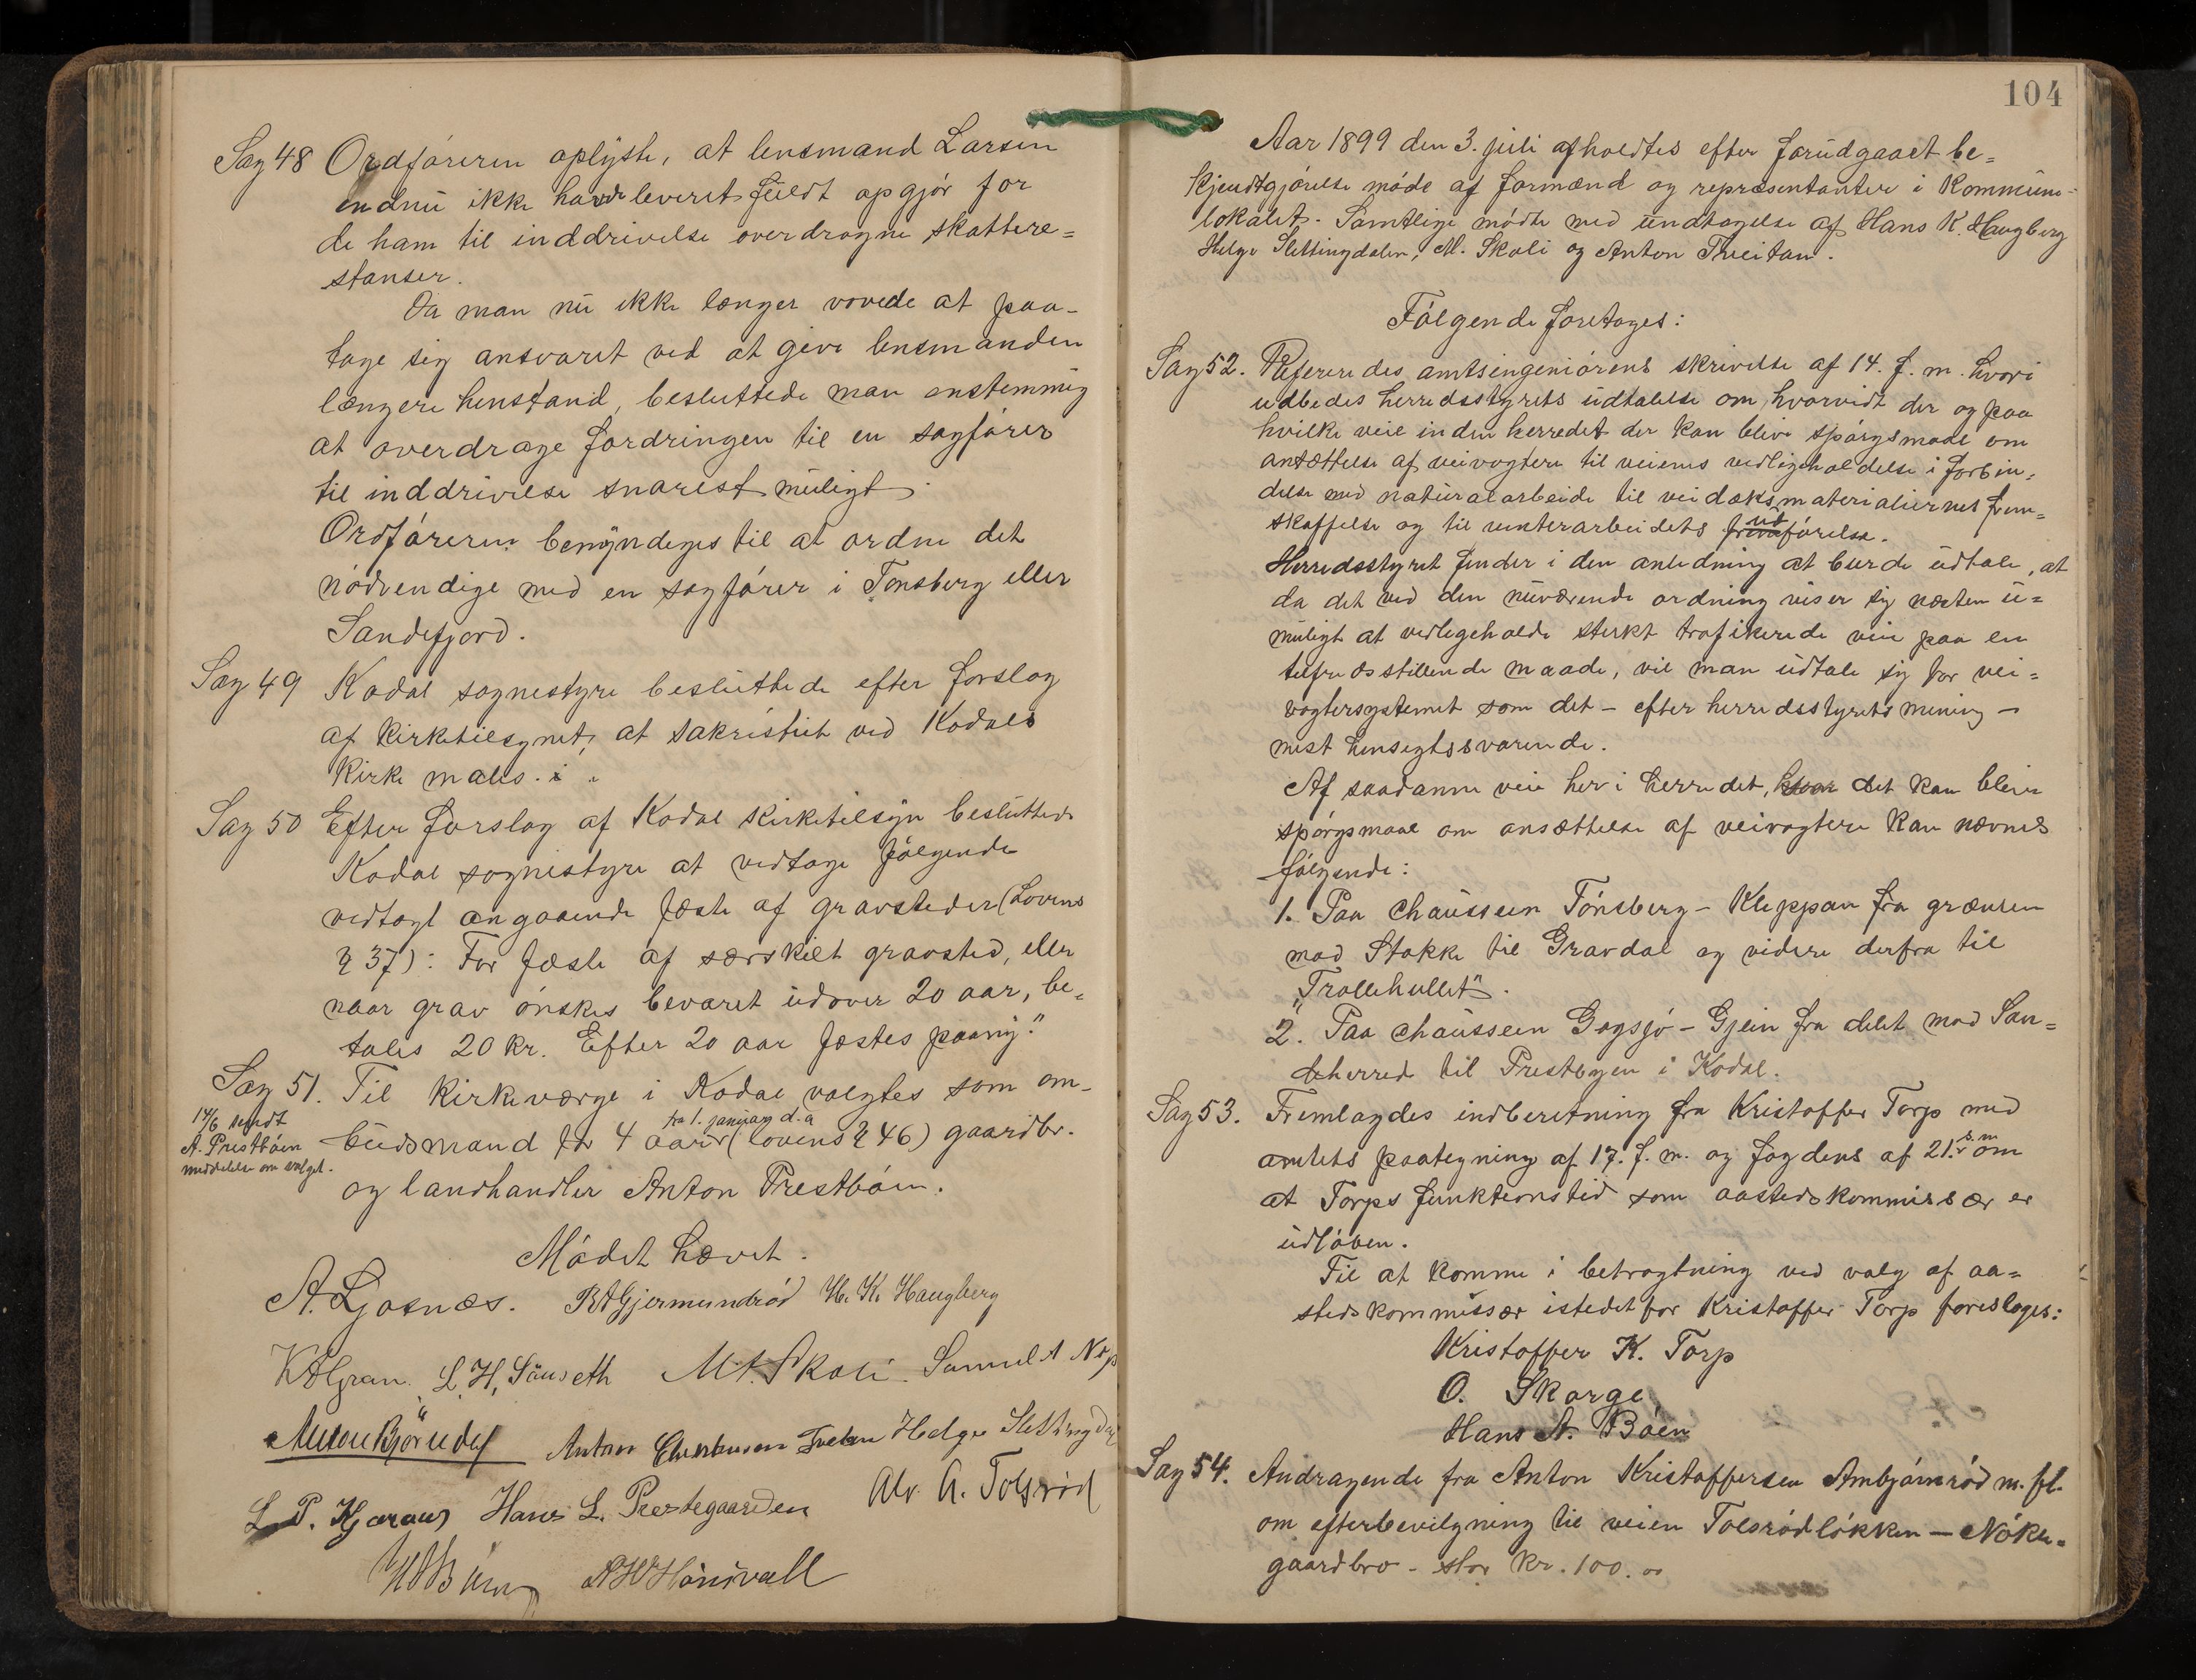 Sag 48 Ordføreren oplyste, at lensmand Larsen
endnu ikke havde leveret fuldt opgjør for
de ham til inddrivelse overdragne skattere=
stanser.
Da man nu ikke længer vovede at paa-
tage sig ansvaret ved at give lensmanden
længere henstand, besluttede man enstemmig
at overdrage fordringen til en sagfører
til inddrivelse snarest muligt.
Ordføreren bemyndiges til at ordne det
nødvendige med en sagfører i Tønsberg eller
Sandefjord.
Sag 49 Kodal sognestyre besluttede efter forslag
af kirketilsynet, at sakristiet ved Kodals
Kirke males.
Sag 50 Efter forslag af Kodal kirketilsyn besluttede
Kodal sognestyre at vedtage følgende
vedtægt angaaende fæste af gravsteder (Lovens
§ 37): For fæste af særskilt gravsted, eller
naar grav ønskes bevaret udover 20 aar, be=
tales 20 kr. Efter 20 aar fæstes paany."
Sag 51. Til kirkeværge i Kodal valgtes som om-
budsmand for 4 aar (lovens § 46) gaardbr.
fra 1. januar d. a
14/6 sendt
A. Prestbøen
meddelelse om valget.
og landhandler Anton Prestbøen.
Mødet hævet.
A. Gjosnæs. R A Gjermundrød H. K. Haugberg
K A Gran. L. H. Sauseth M. Skoli. Samuel A
Anton Christensen Tveitan Helge Slettingdal
L. P. Kjæraas Hans L. Prestegaarden Alv. A. Tolsrød
104
Aar 1899 den 3. juli afholdtes efter forudgaaet be=
kjendtgjørelse møde af formænd og repræsentanter i Kommune-
lokalet. Samtlige mødte med undtagelse af Hans K. Haugberg
Helge Slettingdalen, M. Skoli og Anton Tveitan.
Følgende foretages:
Sag 52. Refereredes amtsingeniørens skrivelse af 14. f. m. hvori
udbedes herredsstyrets udtalelse om, hvorvidt der og paa
hvilke veie inden herredet der kan blive spørgsmaal om
ansættelse af veivogtere til veienes vedligeholdelse i forbin=
delse med naturalarbeide til veidæksmaterialiernes frem=
skaffelse og til vinterarbeidets udførelse.
Herredsstyret finder i den anledning at burde udtale, at
da det ved den nuværende ordning viser sig næsten u=
muligt at vedligeholde sterkt trafikerede veie paa en
tilfredsstillende maade, vil man udtale sig for vei=
vogtersystemet som det - efter herredsstyrets mening -
mest hensigtssvarende.
Af saadanne veie her i herredet, hvor det kan blive
spørgsmaal om ansættelse af veivogtere kan nævnes
følgende:
1. Paa chausseen Tønsberg - Kleppan fra grænsen
mod Stokke til Gravdal og videre derfra til
"Trollehullet".
2. Paa chausseen Gogsjø - Gjein fra delet mod San=
deherred til Prestbyen i Kodal.
Sag 53. Fremlagdes indberetning fra Kristoffer Torp med
amtets paategning af 17. f. m. og fogdens af 21. s. m om
at Torps funktionstid som aastedskommissær er
udløben.
Til at komme i betragtning ved valg af aa=
stedskommissær istedetfor Kristoffer Torp foreslages:
Kristoffer K. Torp
O. Skorge
Hans A. Bøen
Sag 54. Andragende fra Anton Kristoffersen Ambjørnrød m. fl.
om efterbevilgning til veien Tolsrødløkken - Nøkle-
gaardbro - stor kr. 100.00